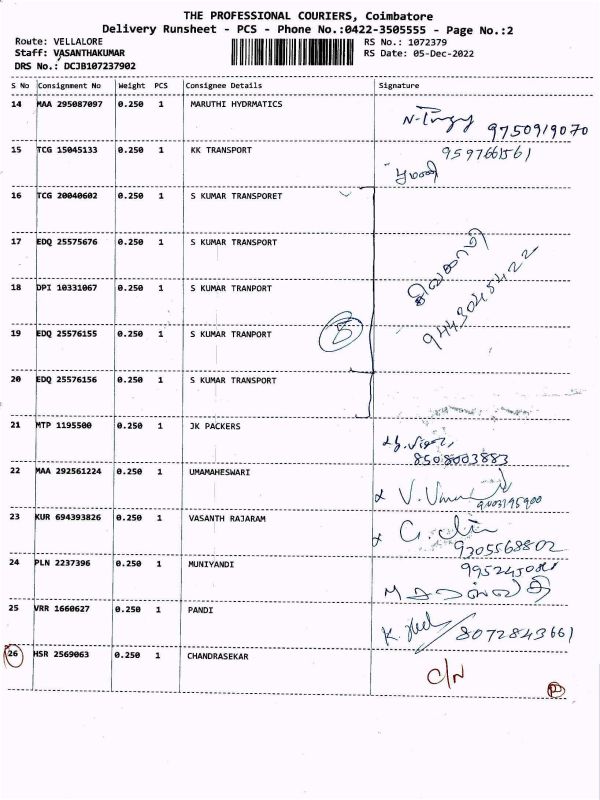 THE PROFESSIONAL COURIERS, Coimbatore
Delivery Runsheet - PCS - Phone No.:0422-3505555 - Page No.:2
Route: VELLALORE RS No.: 1072379
Staff: VASANTHAKUMAR RS Date: 05-Dec-2022
DRS No.: DCJB107237902
S No Consignment No Weight PCS Consignee Details Signature
14 MAA 295087097 0.250 1 MARUTHI HYDRMATICS
9750919070
15 TCG 15045133 0.250 1 KK TRANSPORT 9597661561
16 TCG 20040602 0.250 1 S KUMAR TRANSPORET
17 EDQ 25575676 0.250 1 S KUMAR TRANSPORT
18 DPI 10331067 0.250 1 S KUMAR TRANPORT
9443045422
19 EDQ 25576155 0.250 1 S KUMAR TRANPORT 5
20 EDQ 25576156 0.250 1 S KUMAR TRANSPORT
21 MTP 1195500 0.250 1 JK PACKERS
8508003883
22 MAA 292561224 0.250 1 UMAMAHESWARI
23 KUR 694393826 0.250 1 VASANTH RAJARAM
9305568802
24 PLN 2237396 0.250 1 MUNIYANDI
25 VRR 1660627 0.250 1 PANDI
8072843661
26 HSR 2569063 0.250 1 CHANDRASEKAR
C/N